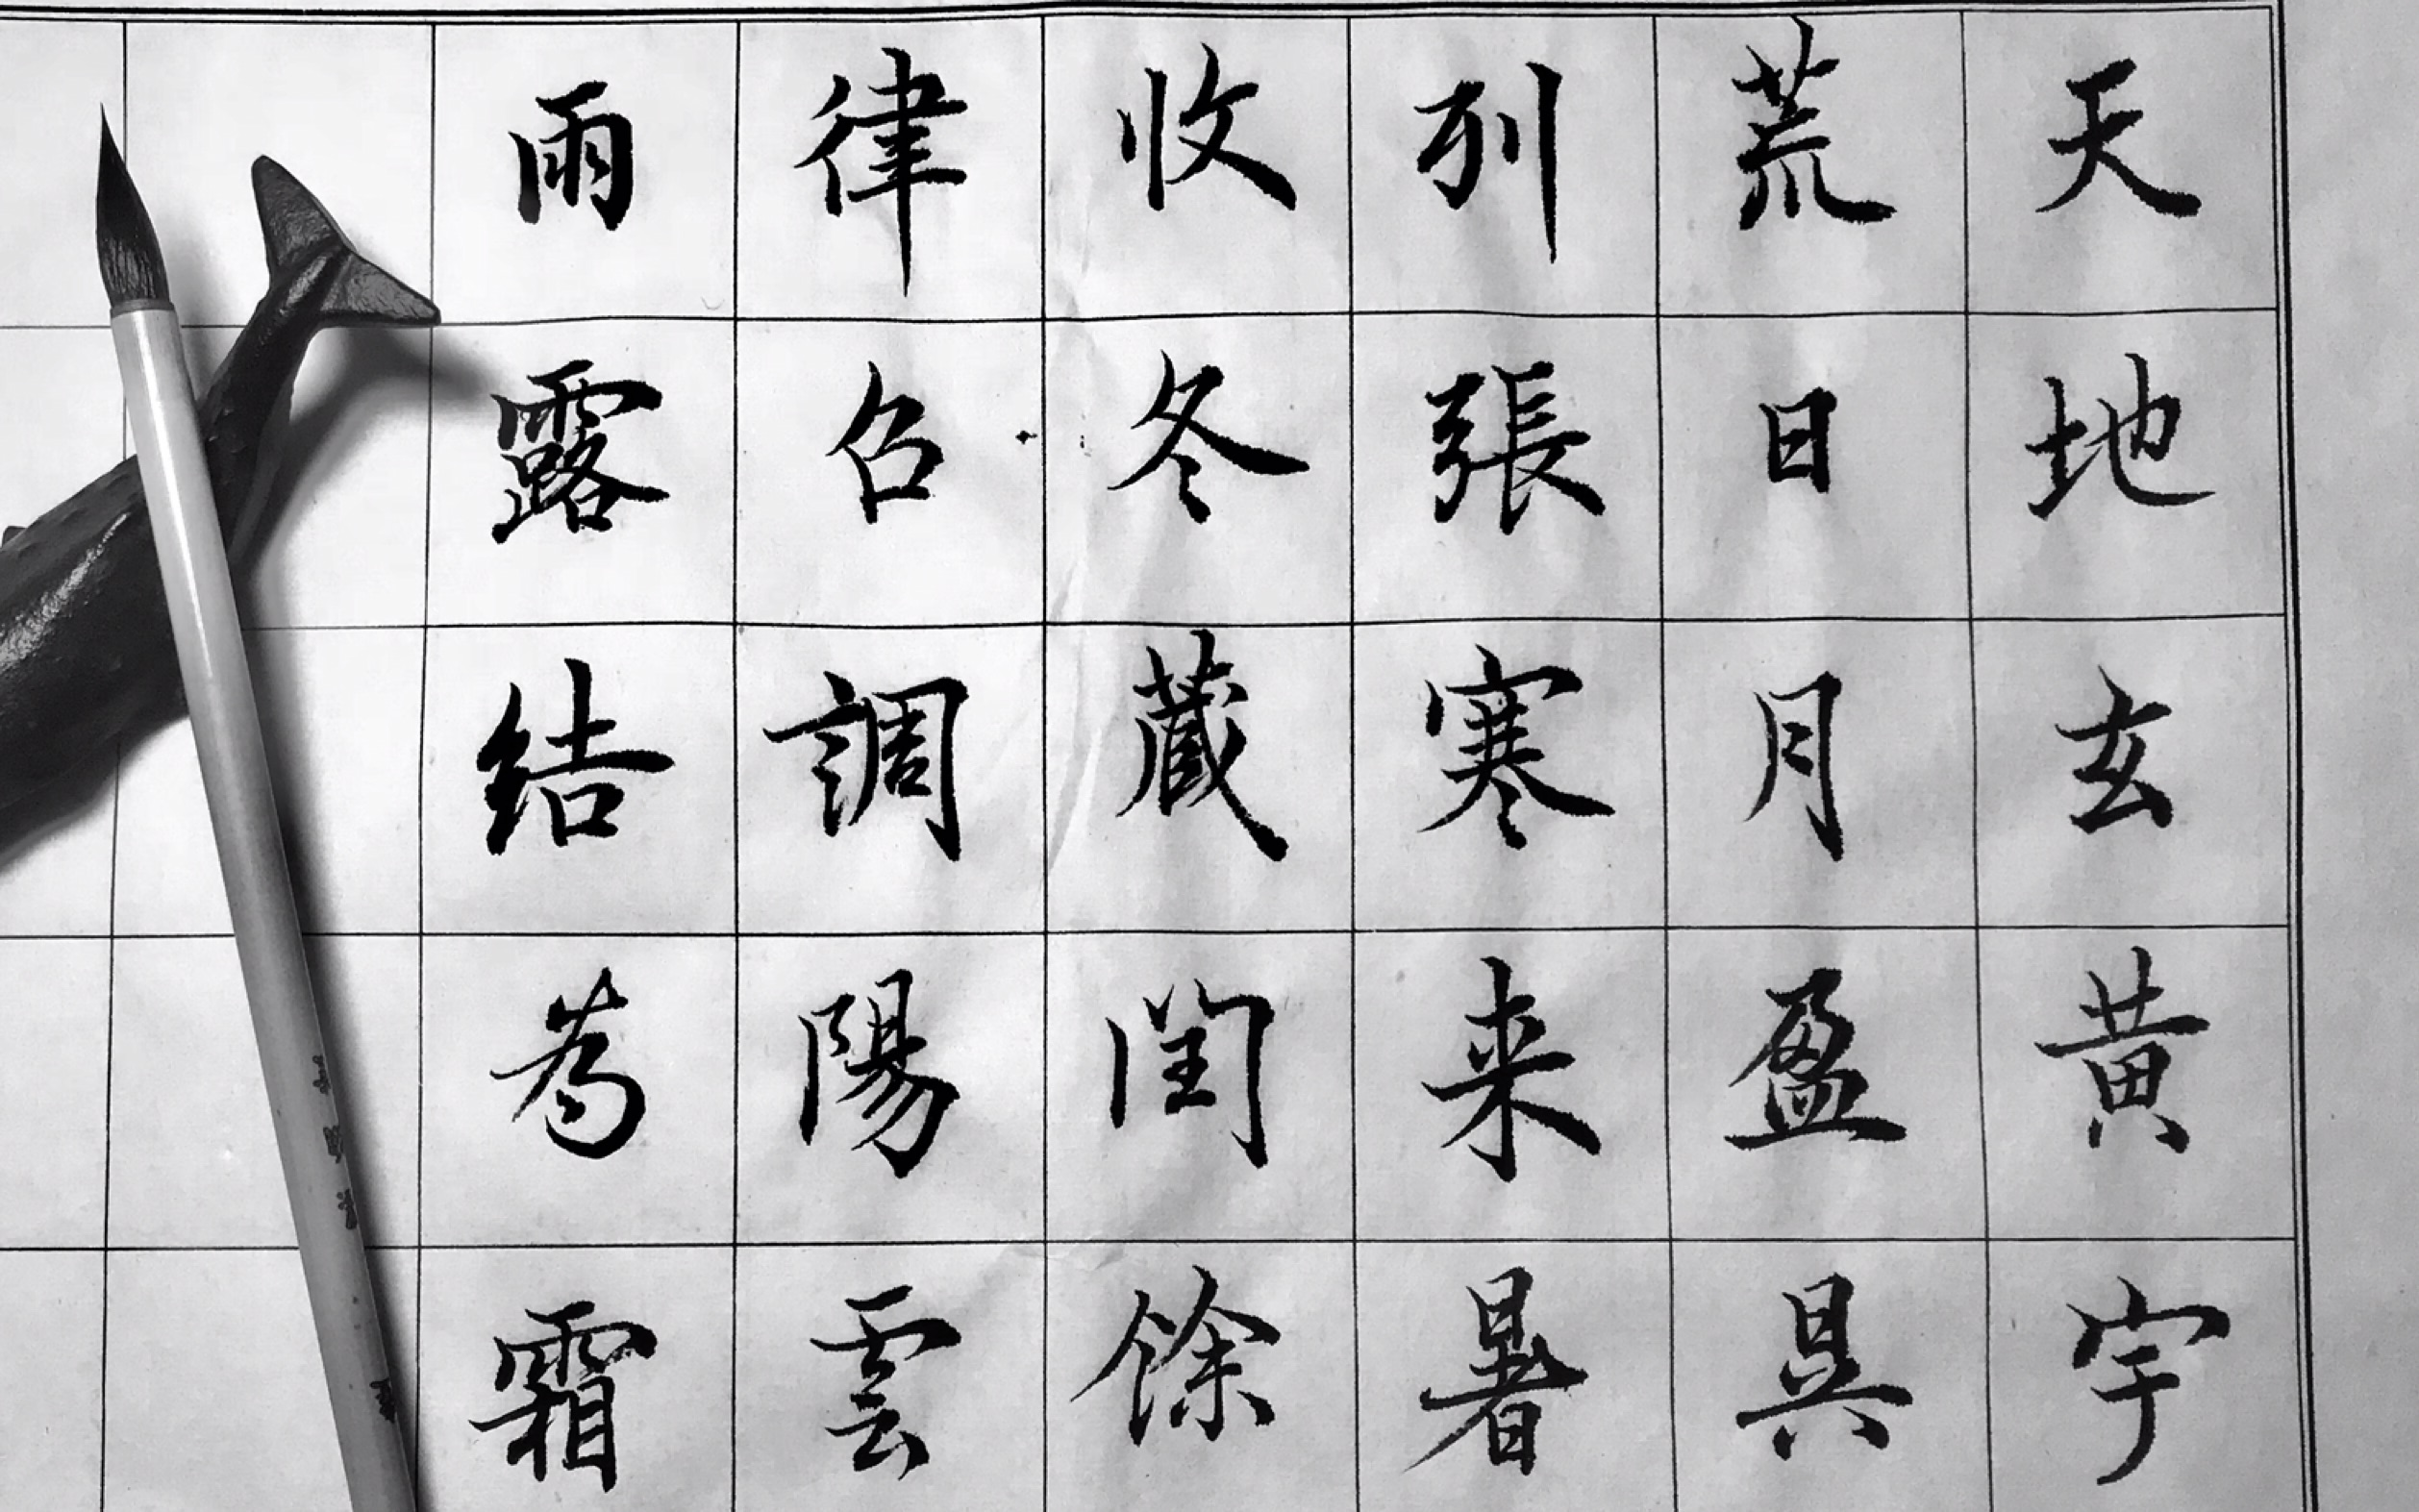 天地玄黄宇
荒日月盈昃
列張寒来暑
收冬藏閏餘
律召調陽雲
雨露結為霜